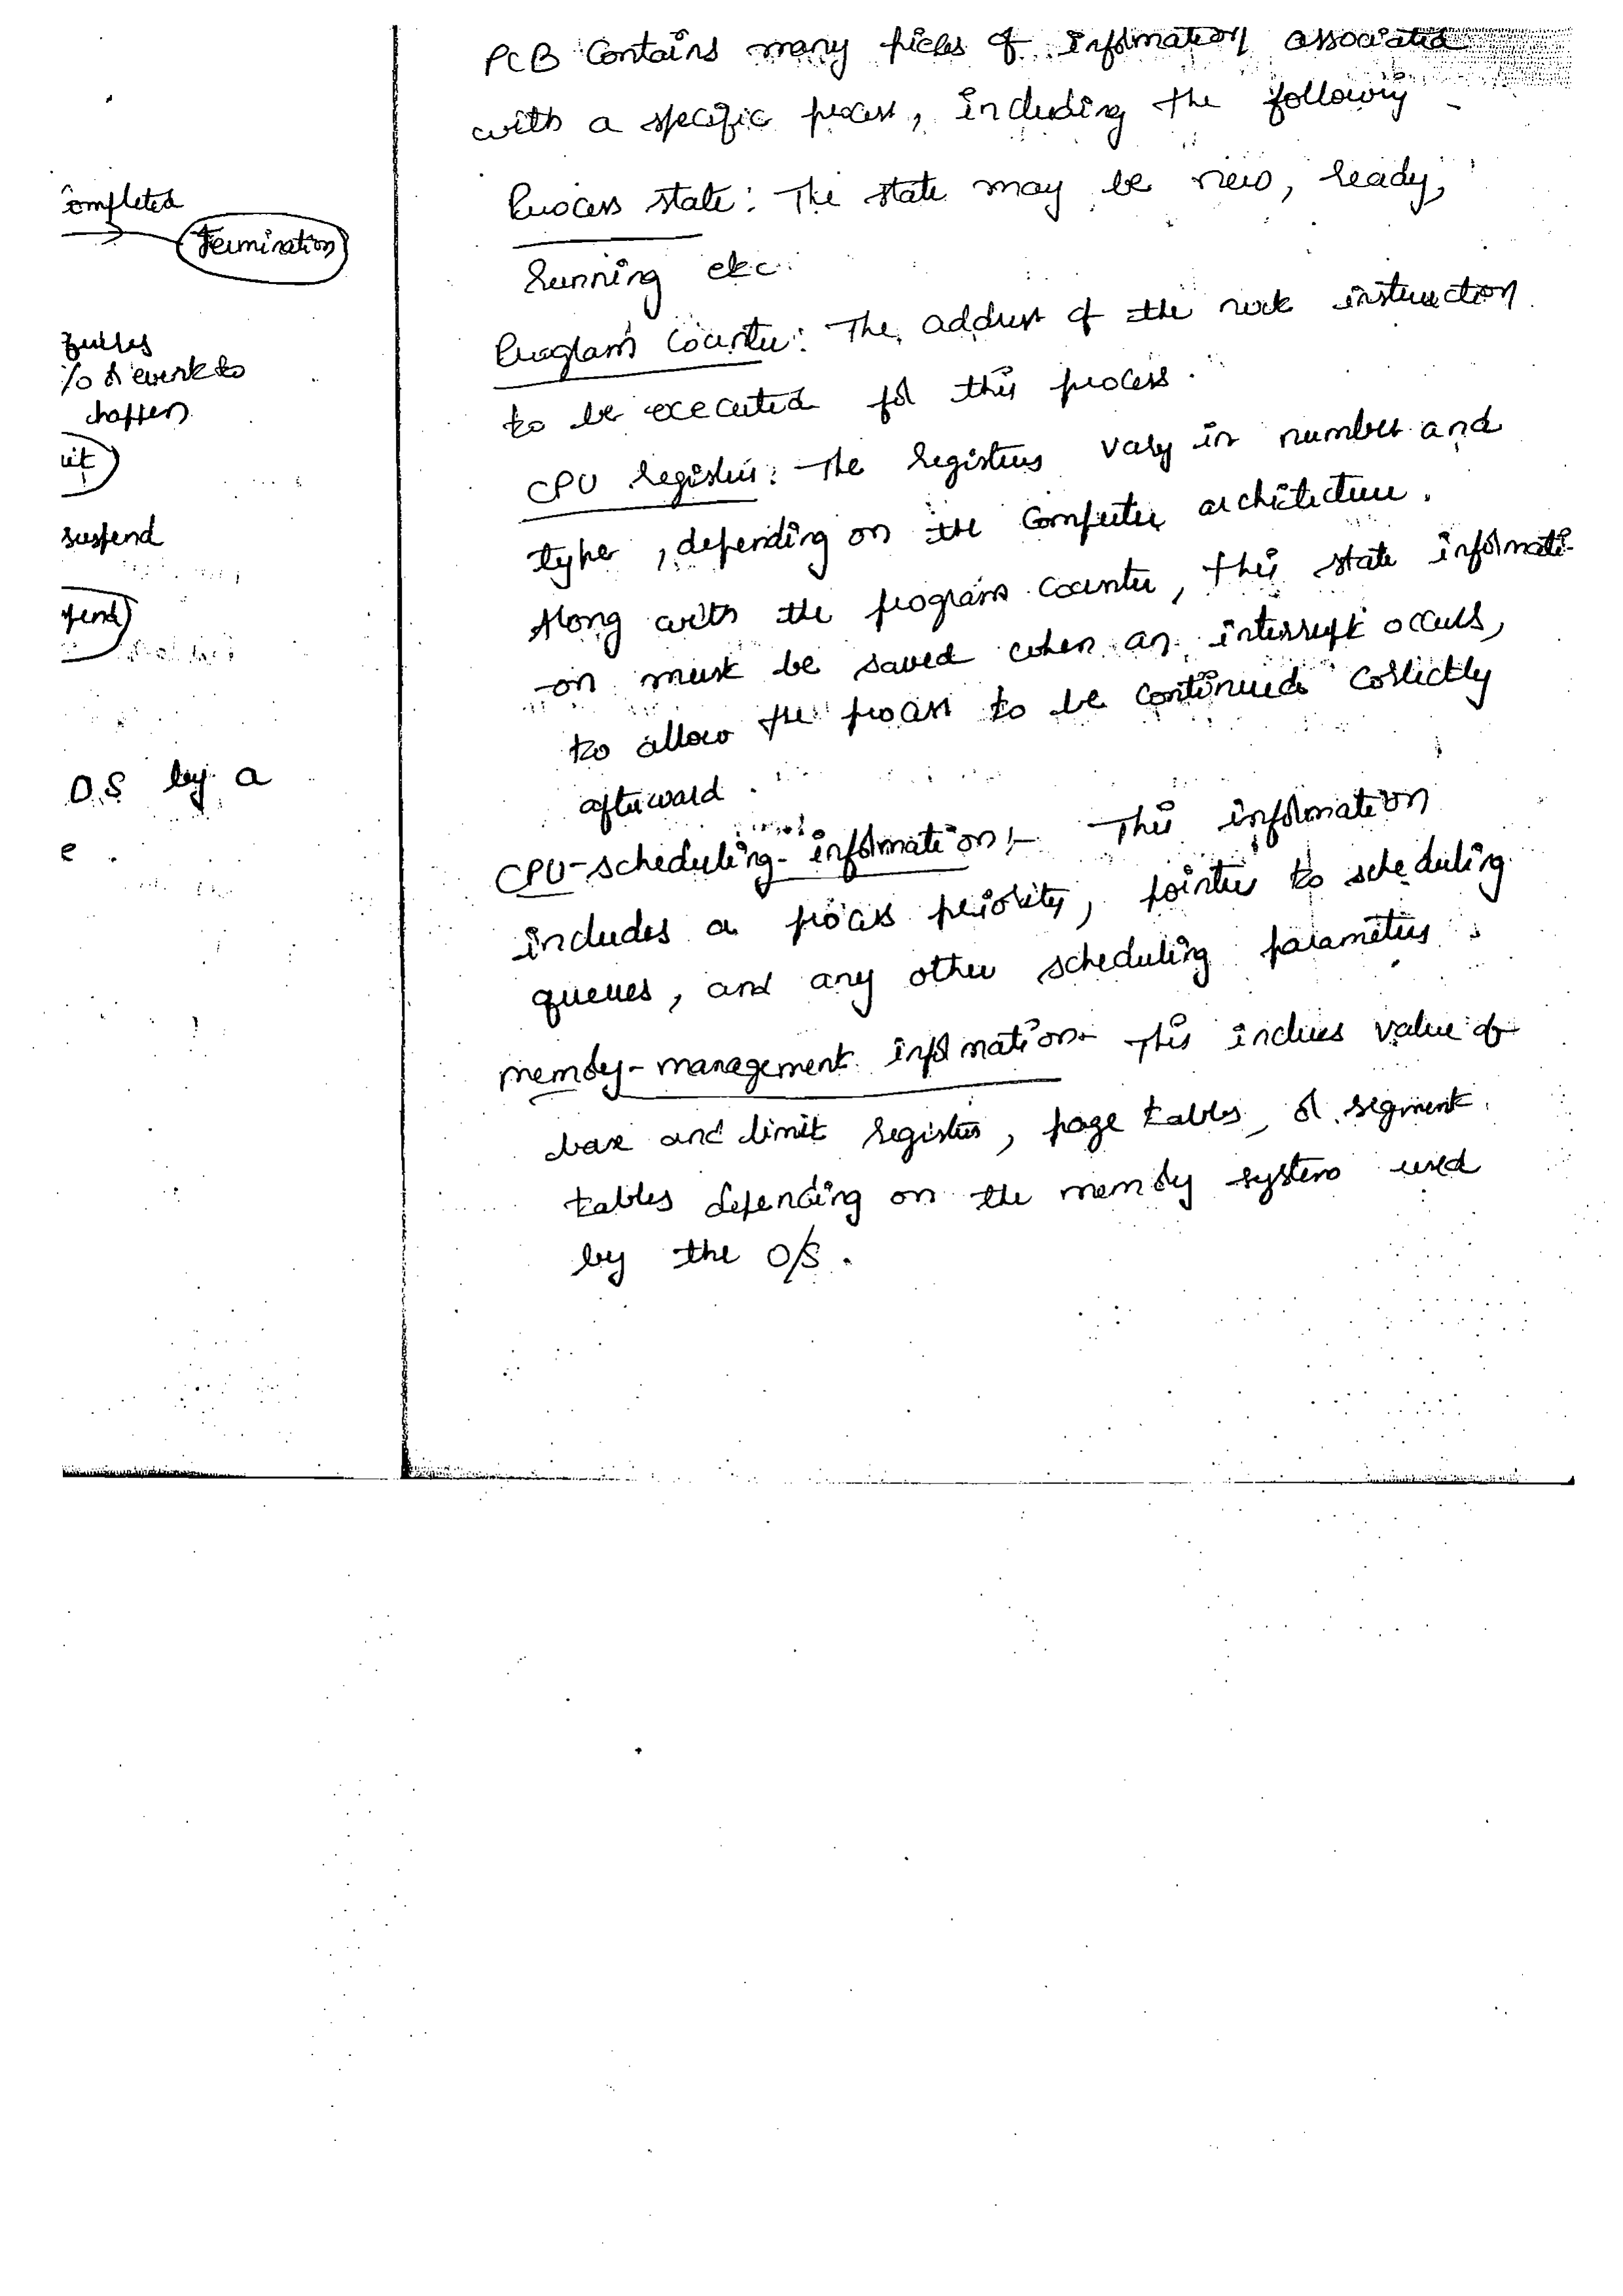 completed
Termination
I/O or event to
happen
suspend
O.S by a
e .
PCB contains many pieces of information associated
with a specific process, including the following -
Process state: The state may be new, ready,
running etc.
Program counter: The address of the next instruction
to be executed for this process.
CPU registers: The registers vary in number and
type, depending on the computer architecture.
Along with the program counter, this state informati-
-on must be saved when an interrupt occurs,
to allow the process to be continued correctly
afterward.
CPU-scheduling-information:- This information
includes a process priority, pointer to scheduling
queues, and any other scheduling parameters.
memory-management information- This inclues value of
base and limit registers, page tables, or segment
tables depending on the memory system used
by the O/S.